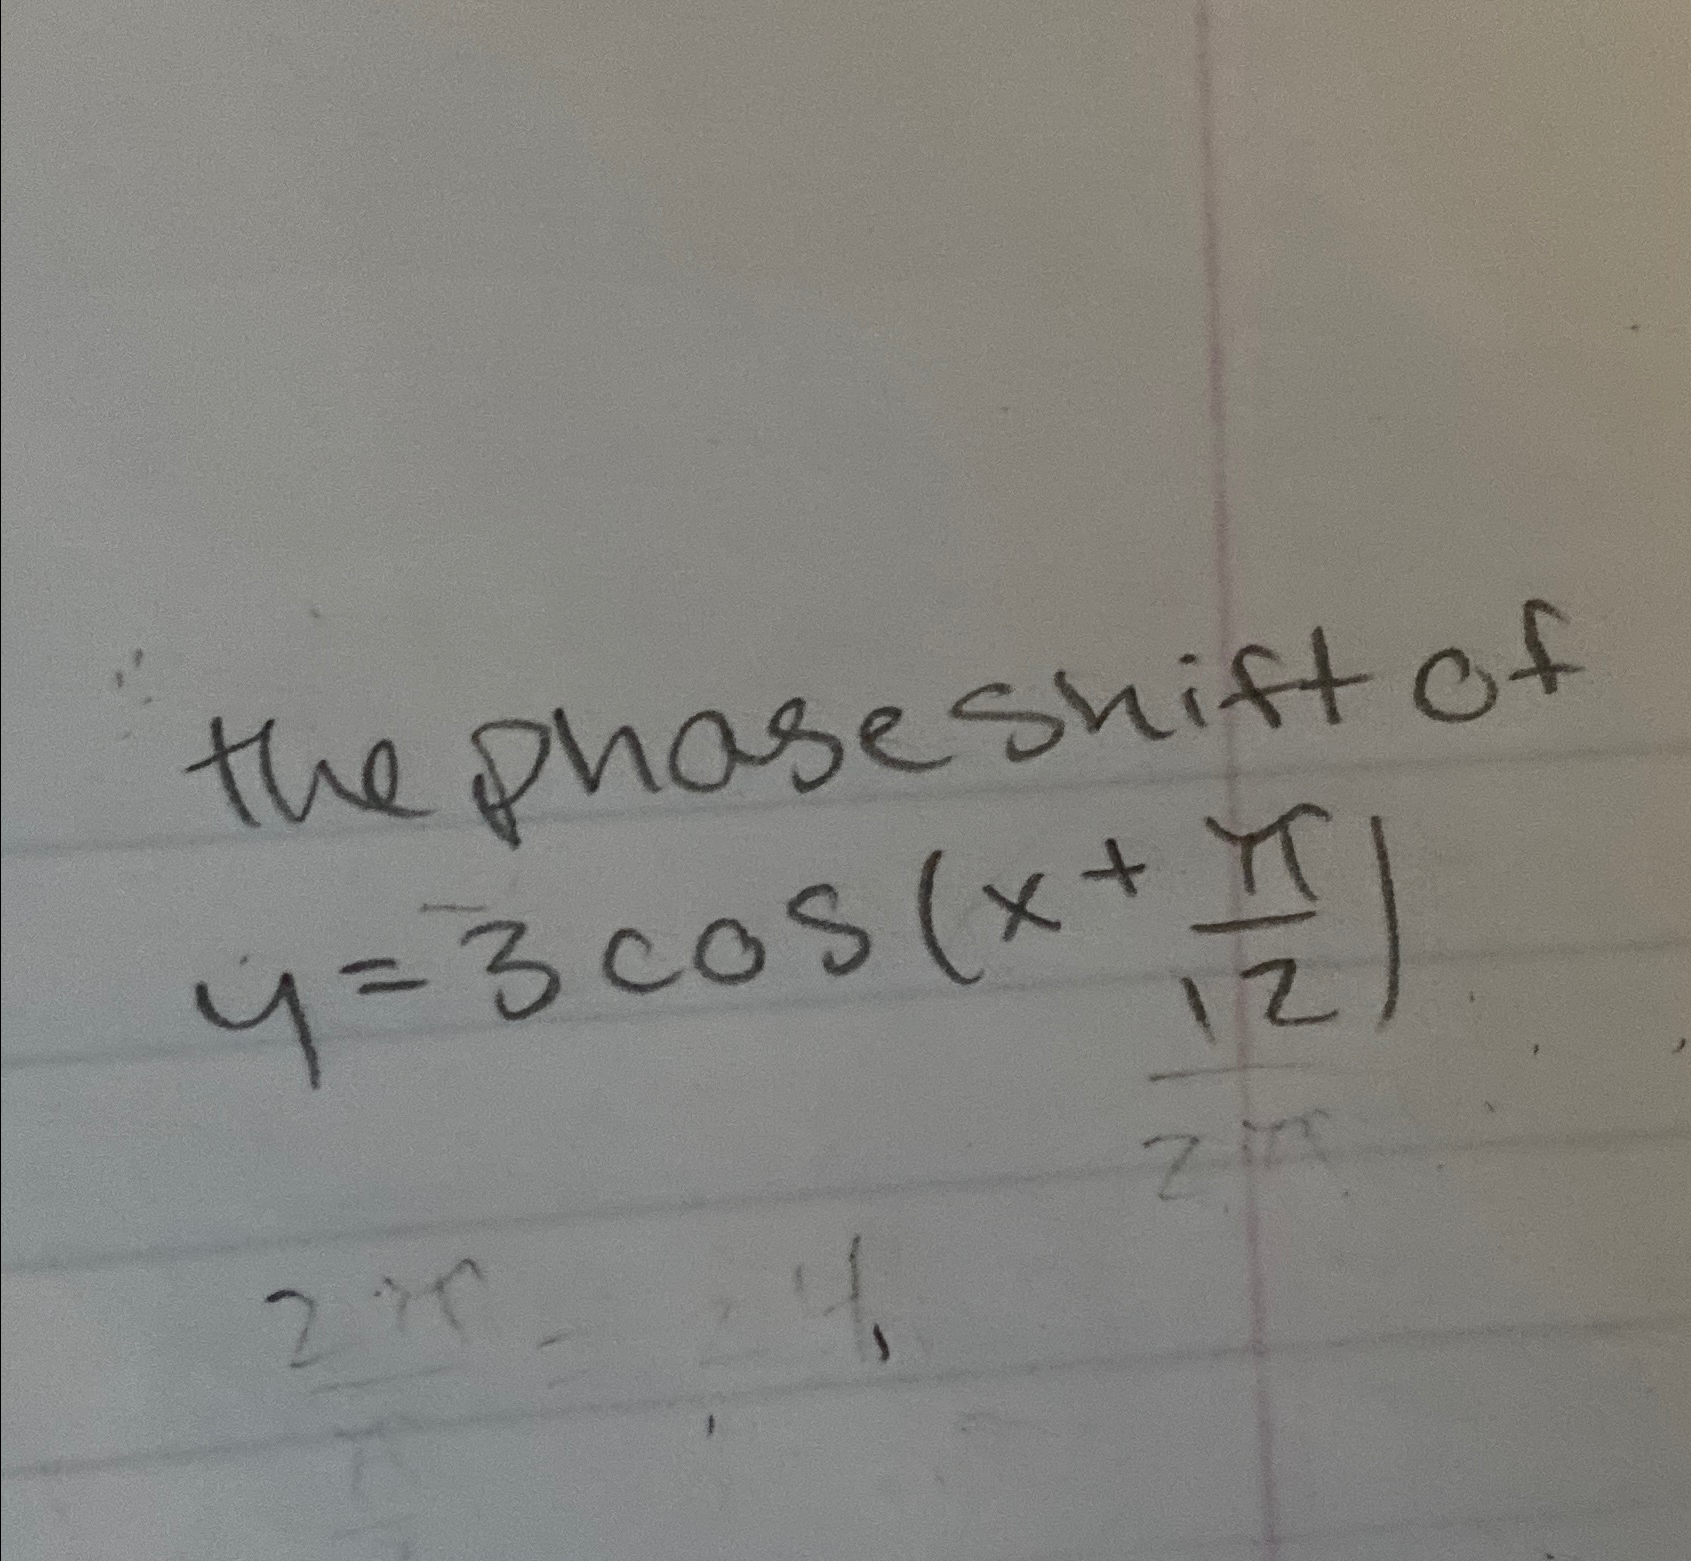 the phase shift of
y = -3 cos (x + π/12)
2π
2π = 4